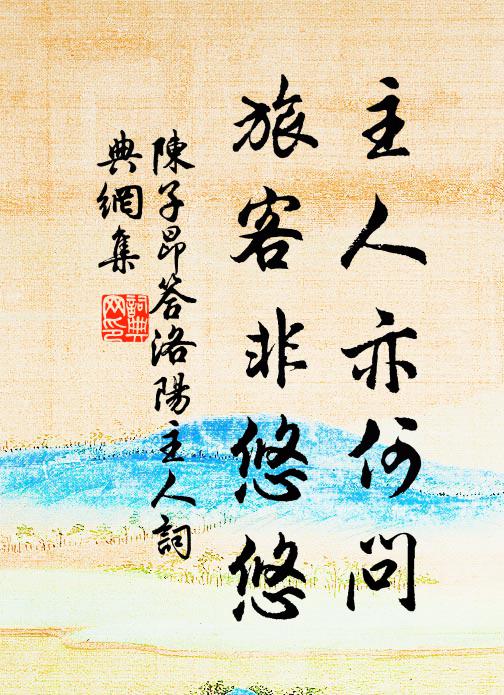 主人亦何問
旅客非悠悠
陳子昂答洛陽主人詞
典網集
詞典
网印